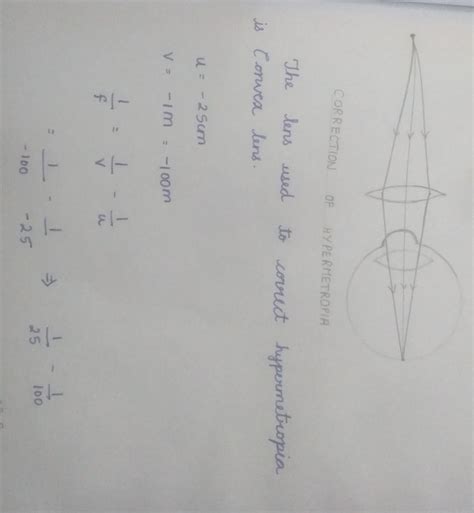 CORRECTION OF HYPERMETROPIA
The lens used to correct hypermetropia
is Convex lens.
u = -25cm
v = -1m = -100m
1/f = 1/v - 1/u
= 1/-100 - 1/-25 ⇒ 1/25 - 1/100